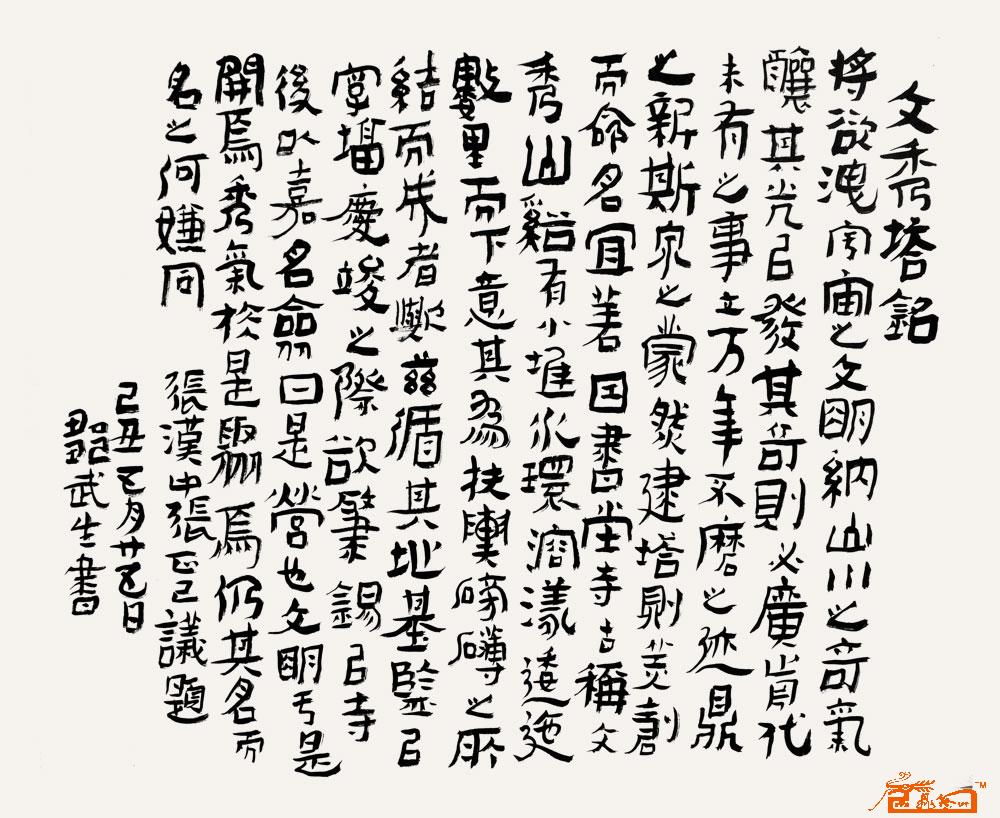 文秀塔銘
將欲洩宇宙之文明納山川之奇氣
釀其光㠯發其奇則必廣前代
未有之事立万年不磨之迹鼎
之新斯泉之蒙然建塔則芰創
而命名宜著因書堂寺古稱文
秀山谿有小堆水環溶漾逶迤
數里而下意其為扶輿磅礴之所
結而成者歟茲循其地基監㠯
寧塔慶竣之際欲肇錫㠯寺
後以嘉名命曰是營也文明亐是
開焉秀氣於是聚焉仍其名而
名之何嫌同
張漢中張正己議題
己丑五月廿五日
武生書